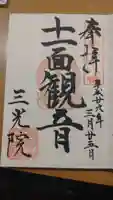 奉拝
平成廿六年
三月廿五日
十一面観音
三光院